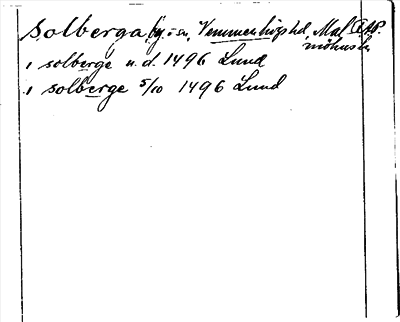 Solberga, by, i sn. Vemmenhögs hd, Mal
möhus län
i solberge u. d. 1496 Lund
i solberge 5/10 1496 Lund